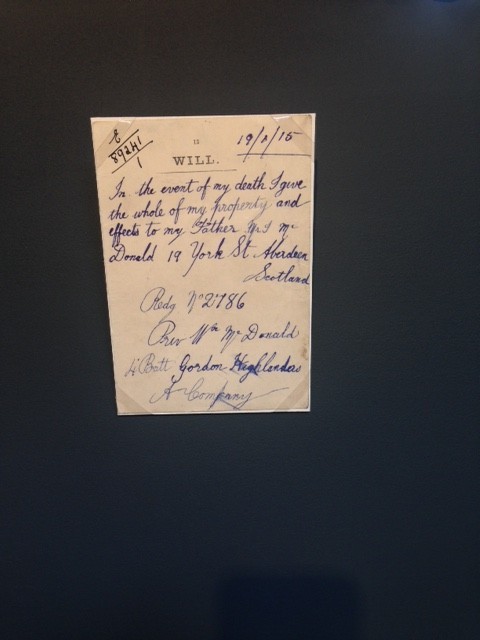 E
89241
1
13
19/2/15
WILL.
In the event of my death I give
the whole of my property and
effects to my Father Mr J Mc
Donald 19 York St Aberdeen
Scotland
Redg No 2786
Priv Wm Mc Donald
4 Batt Gordon Highlanders
A Company